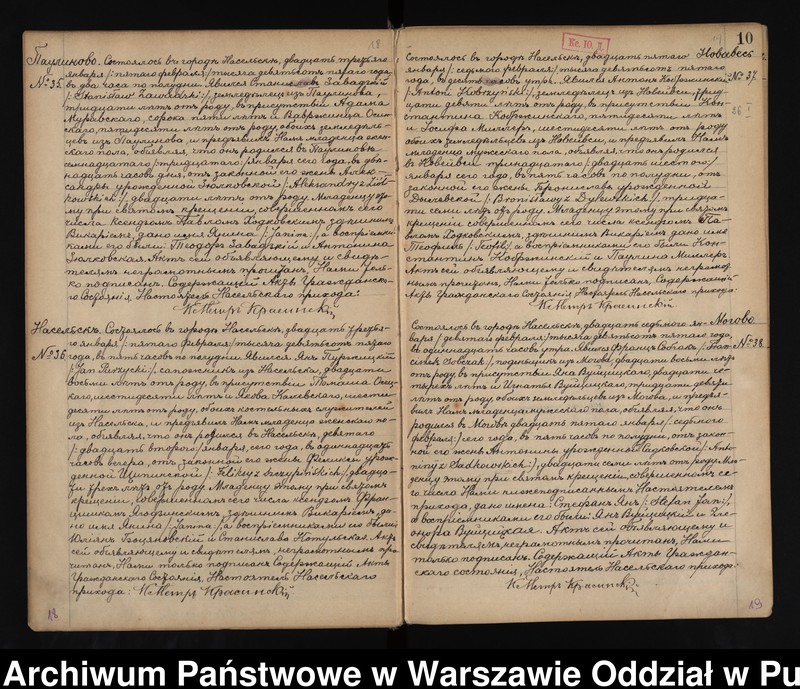 18
Паулиново. Состоялось въ городѣ Насельскѣ, двадцать третьяго
№ 35. января /: пятаго февраля :/ тысяча девятьсотъ пятаго года,
въ два часа по полудни. Явился Станиславъ Завадзкій
/: Stanisław Zawadzki :/, земледѣлецъ изъ Паулинова,
тридцати лѣтъ отъ роду, въ присутствіи Адама
сорока пяти лѣтъ и Вавржинца
пятидесяти лѣтъ отъ роду, обоихъ земледѣль-
цевъ изъ Паулинова, и предъявилъ Намъ младенца жен-
скаго пола, объявляя, что онъ родился въ Паулиновѣ,
семнадцатаго /: тридцатаго :/ января сего года, въ две-
надцать часовъ дня, отъ законной его жены Алек-
сандры урожденной Зіолковской /: Aleksandry z Ziół-
kowskich :/, двадцати лѣтъ отъ роду. Младенцу это-
му при святомъ крещеніи, совершенномъ сего
числа Ксендзомъ Павломъ Годковскимъ, здѣшнимъ
Викаріемъ, дано имя Янина /: Janina :/, а воспріемни-
ками его были: Теодоръ Завадзкій и Антонина
Зіолковская. Актъ сей объявляющему и свидѣ-
телямъ неграмотнымъ прочитанъ, Нами толь-
ко подписанъ. Содержащій Акты Гражданска-
го Состоянія, Настоятель Насельскаго прихода:
К. Петръ Красинскій
Насельскъ. Состоялось въ городѣ Насельскѣ, двадцать третья-
№ 36. го января /: пятаго февраля :/ тысяча девятьсотъ пятаго
года, въ пять часовъ по полудни. Явился Янъ Пуржицкій
/: Jan Purzycki :/, сапожникъ изъ Насельска, двадцати
восьми лѣтъ отъ роду, въ присутствіи Томаша
лѣтъ и Якова шести-
десяти лѣтъ отъ роду, обоихъ костельныхъ служителей
изъ Насельска, и предъявилъ Намъ младенца женскаго по-
ла, объявляя, что онъ родился въ Насельскѣ, девятаго
/: двадцать второго :/ января, сего года, въ одиннадцать
часовъ вечера, отъ законной его жены Фелиціи урож-
денной Щипинской /: Felicyi z Szczypińskich :/, двадца-
ти трехъ лѣтъ отъ роду. Младенцу этому при святомъ
крещеніи, совершенномъ сего числа Ксендзомъ Фран-
цишкомъ здѣшнимъ Викаріемъ, да-
но имя Янина /: Janina :/, а воспріемниками его были:
Юліянъ и Станислава Актъ
сей объявляющему и свидѣтелямъ, неграмотнымъ про-
читанъ, Нами только подписанъ. Содержащій Акты
Гражданскаго Состоянія, Настоятель Насельскаго
прихода: К. Петръ Красинскій
18
Кс. Ю. Д.
10
Состоялось въ городѣ Насельскѣ, двадцать пятаго Новавесь
января /: седьмаго февраля :/ тысяча девятьсотъ пятаго № 37.
года, въ десять часовъ утра. Явился Антонъ
/: Antoni :/, земледѣлецъ изъ Новейвси, трид-
цати девяти лѣтъ отъ роду, въ присутствіи Кон-
стантина пятидесяти лѣтъ
и Іосифа шестидесяти лѣтъ отъ роду
обоихъ земледѣльцевъ изъ Новейвси, и предъявилъ Намъ
младенца мужескаго пола, объявляя, что онъ родился
въ Новейвси тринадцатаго /: двадцать шестого :/
января сего года, въ пять часовъ по полудни, отъ
законной его жены Брониславы урожденной
тридца-
ти семи лѣтъ отъ роду. Младенцу этому при святомъ
крещеніи совершенномъ сего числа Ксендзомъ Па-
вломъ Годковскимъ, здѣшнимъ Викаріемъ дано имя
Теофилъ /: Teofil :/, а воспріемниками его были Кон-
стантинъ и Паулина
Актъ сей объявляющему и свидѣтелямъ неграмот-
нымъ прочитанъ, Нами только подписанъ. Содержащій
Акты Гражданскаго Состоянія Настоятель Насельскаго прихода:
К. Петръ Красинскій
Состоялось въ городѣ Насельскѣ, двадцать седьмого ян- Могово
варя /: девятаго февраля :/ тысяча девятьсотъ пятаго года, № 38.
въ одиннадцать часовъ утра. Явился Францишекъ
изъ Могова, двадцати восьми лѣтъ
отъ роду, въ присутствіи Яна Вуйцицкаго, двадцати че-
тырехъ лѣтъ и Игнатія Вуйцицкаго, тридцати девяти
лѣтъ отъ роду, обоихъ земледѣльцевъ изъ Могова, и предъя-
вилъ Намъ младенца мужескаго пола, объявляя, что онъ
родился въ Моговѣ двадцать пятаго января /: седьмого
февраля :/ сего года, въ пять часовъ по полудни, отъ закон-
ной его жены Антонины урожденной Садковской /: Anto-
niny z Sadkowskich :/, двадцати семи лѣтъ отъ роду. Мла-
денцу этому при святомъ крещеніи, совершенномъ се-
го числа Нами нижеподписаннымъ Настоятелемъ
прихода, дано имена: Стефанъ Янъ /: Stefan Jan :/,
а воспріемниками его были: Янъ Вуйцицкій и Эле-
онора Вуйцицкая. Актъ сей объявляющему и
свидѣтелямъ, неграмотнымъ прочитанъ, Нами
только подписанъ. Содержащій Акты Граждан-
скаго состоянія, Настоятель Насельскаго прихода:
К. Петръ Красинскій
19
Archiwum Państwowe w Warszawie Oddział w Pu